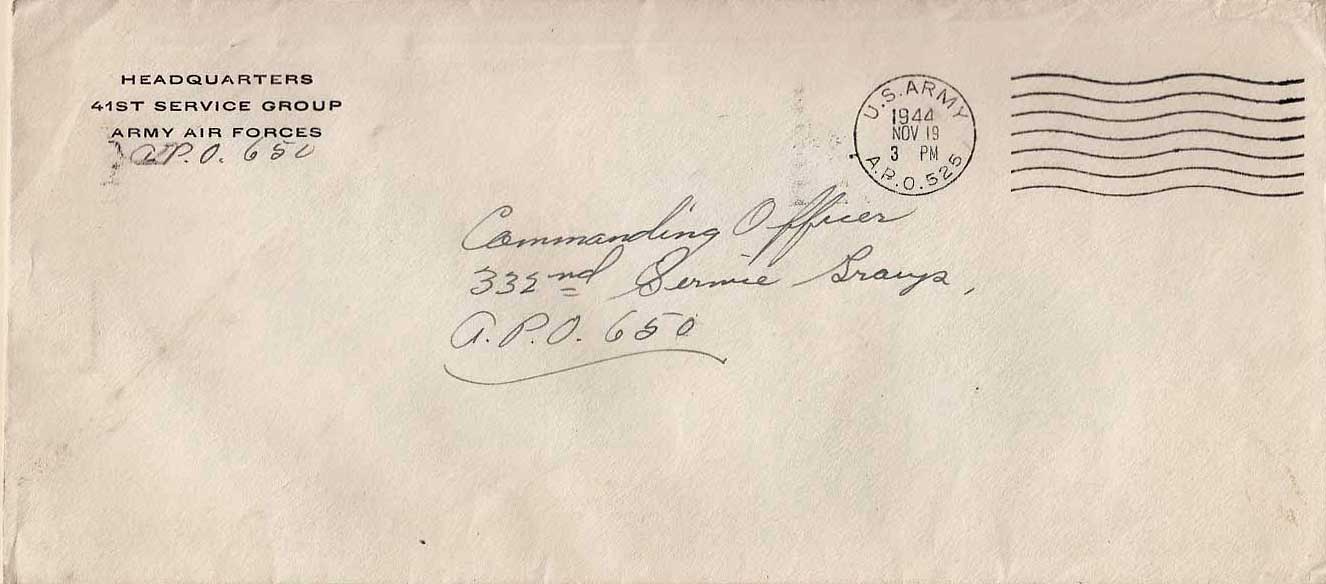 HEADQUARTERS
41ST SERVICE GROUP
ARMY AIR FORCES
A.P.O. 650
U.S. ARMY
1944
NOV 19
3 PM
A.P.O. 525
Commanding Officer
332nd Service Group,
A.P.O. 650